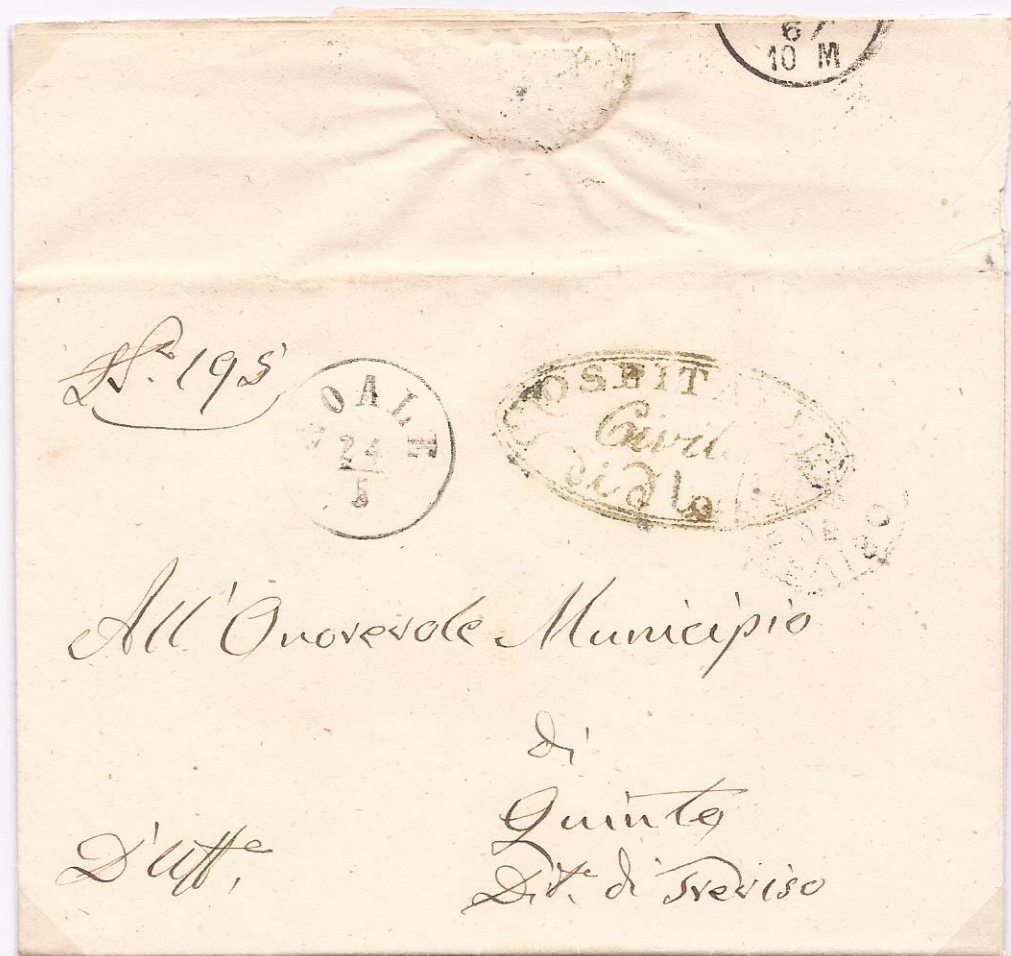 67
10 M
N.º 195
NOALE
24
5
OSPITALE
Civile
di No
All'Onorevole Municipio
di
Quinto
Dit.º di Treviso
D'Uff.º